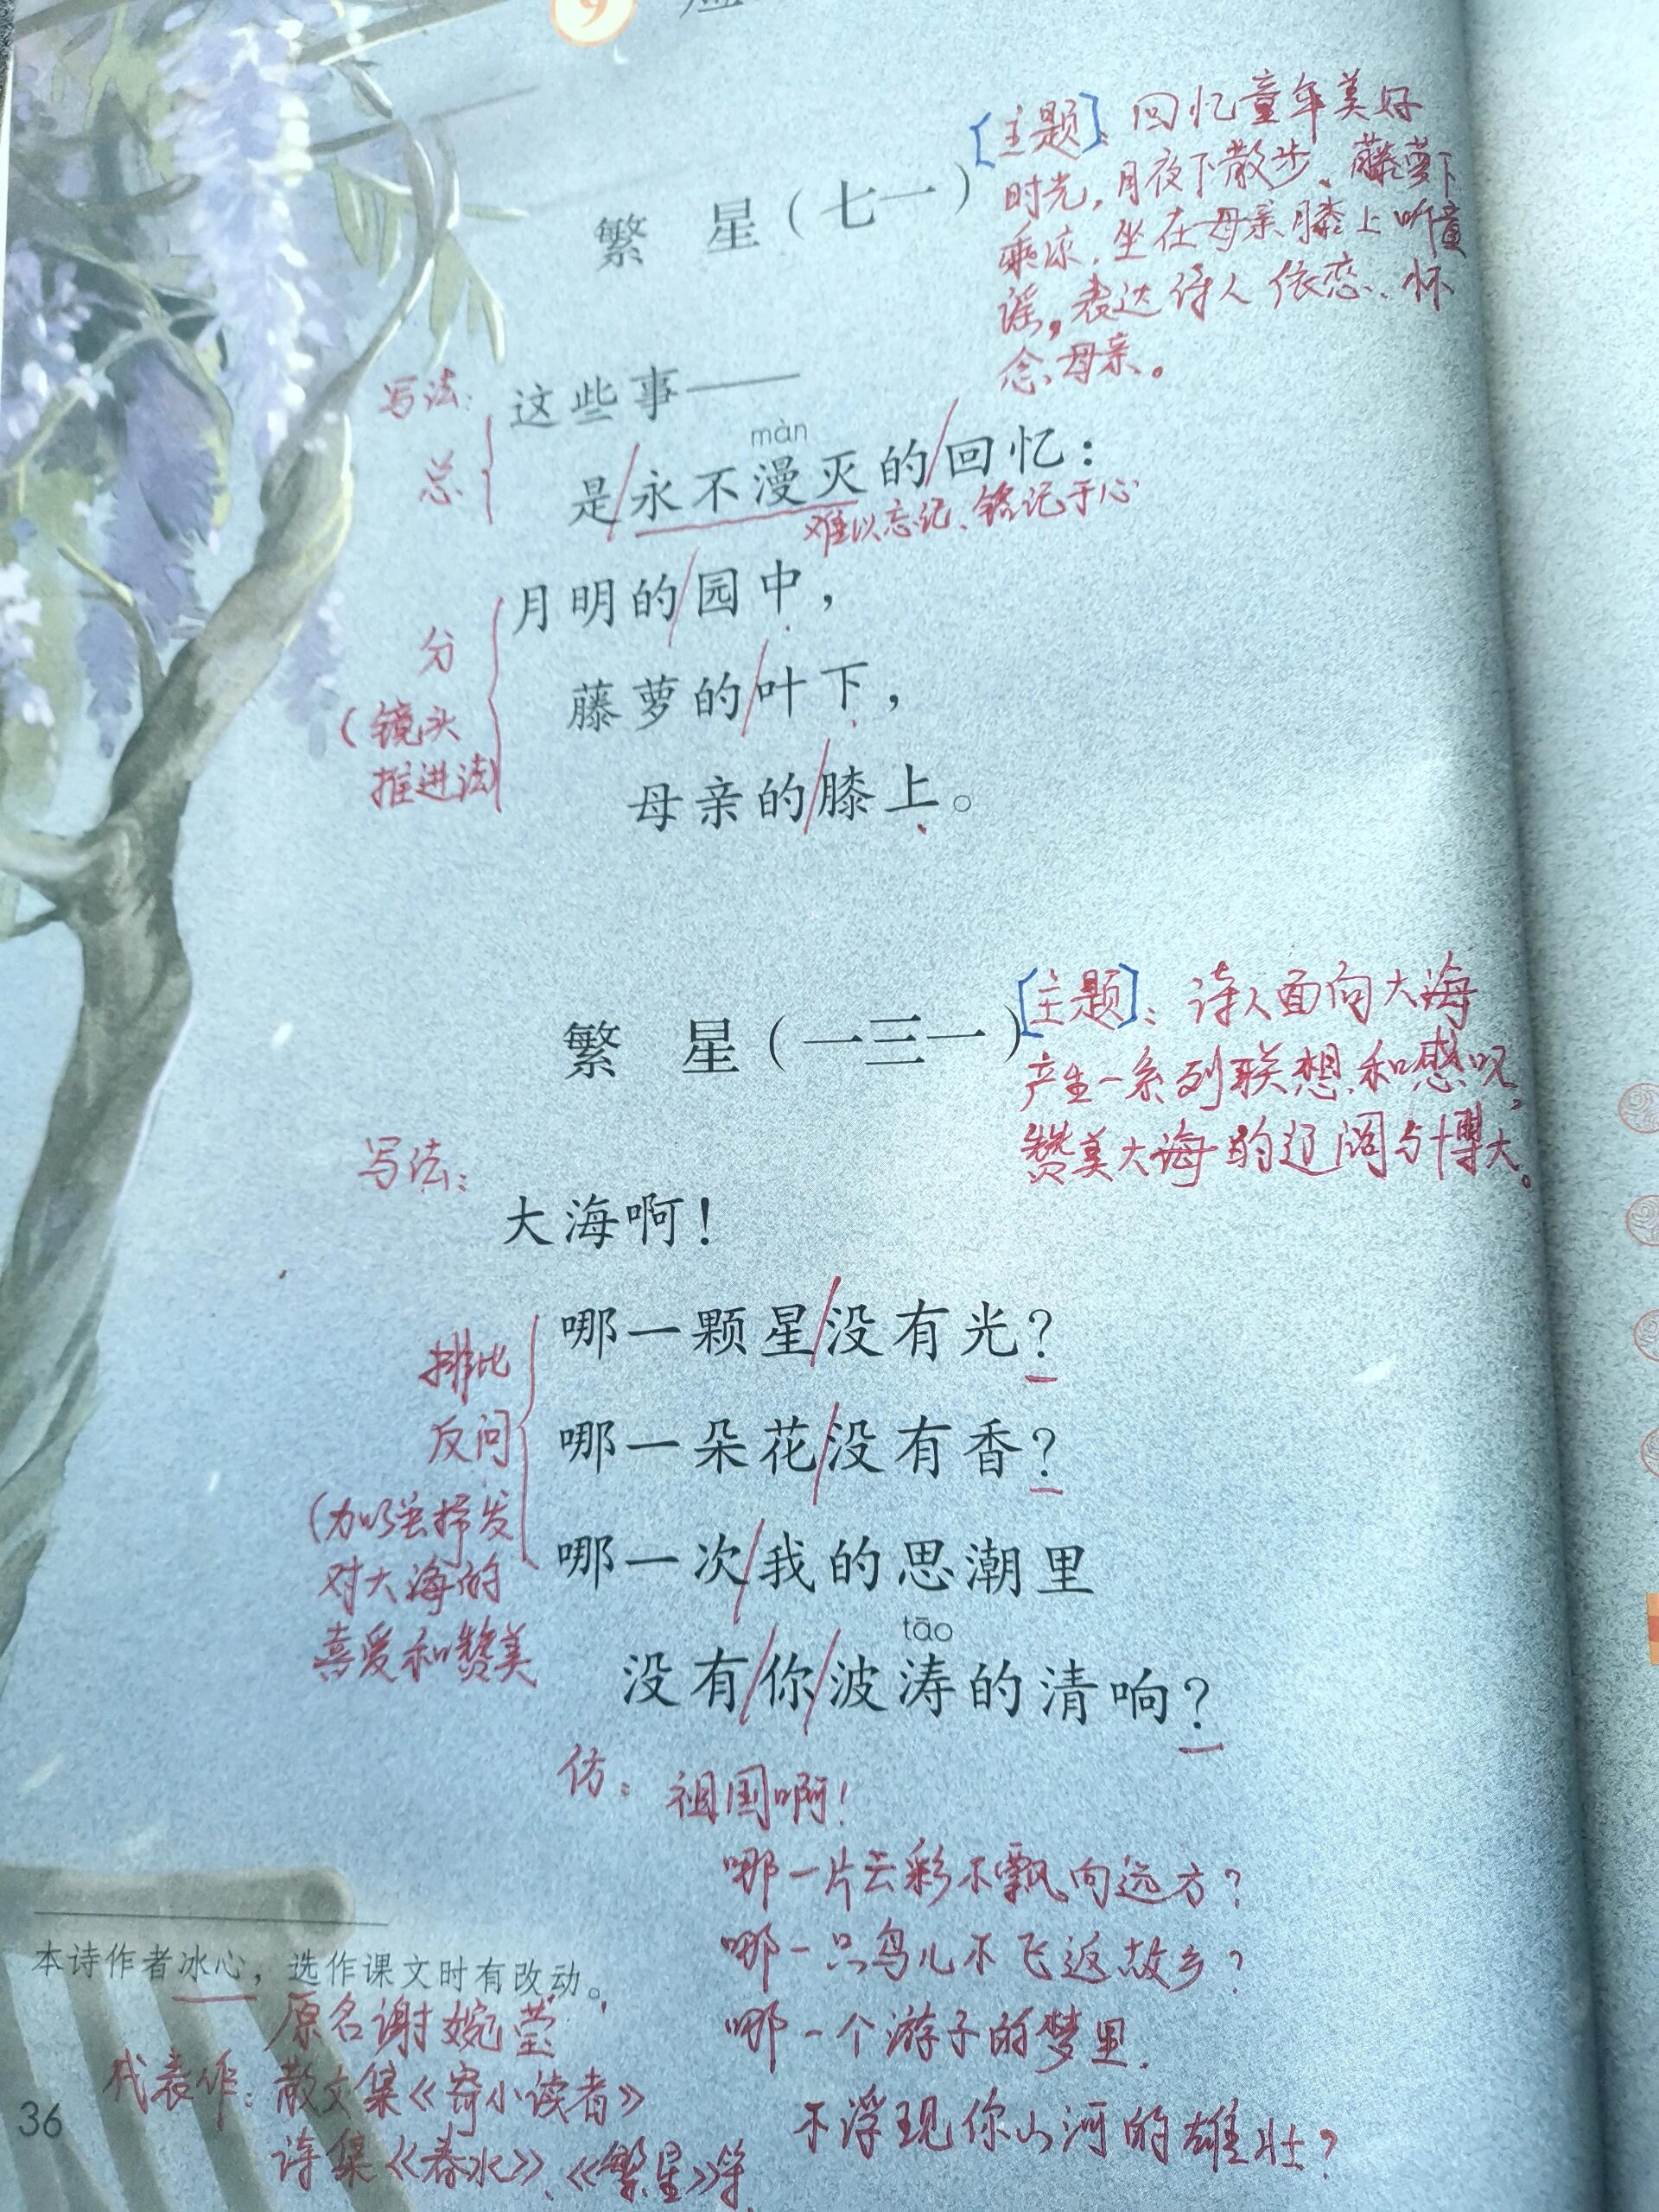 9
繁 星（七一）
[主题]：回忆童年美好
时光，月夜下散步、藤萝下
乘凉，坐在母亲膝上听童
谣，表达诗人依恋、怀
念母亲。
写法：
总
这些事——
màn
是/永不漫灭的/回忆：
难以忘记、铭记于心
分
（镜头
推进法）
月明的/园中，
藤萝的/叶下，
母亲的/膝上。
繁 星（一三一）
[主题]：诗人面向大海
产生一系列联想和感叹，
赞美大海的辽阔与博大。
写法：
大海啊！
排比
反问
（加强抒发
对大海的
喜爱和赞美
哪一颗星/没有光？
哪一朵花/没有香？
哪一次/我的思潮里
tāo
没有/你/波涛的清响？
仿：祖国啊！
哪一片云彩不飘向远方？
哪一只鸟儿不飞返故乡？
哪一个游子的梦里，
不浮现你山河的雄壮？
本诗作者冰心，选作课文时有改动。
原名谢婉莹
代表作：散文集《寄小读者》
诗集《春水》、《繁星》等
36